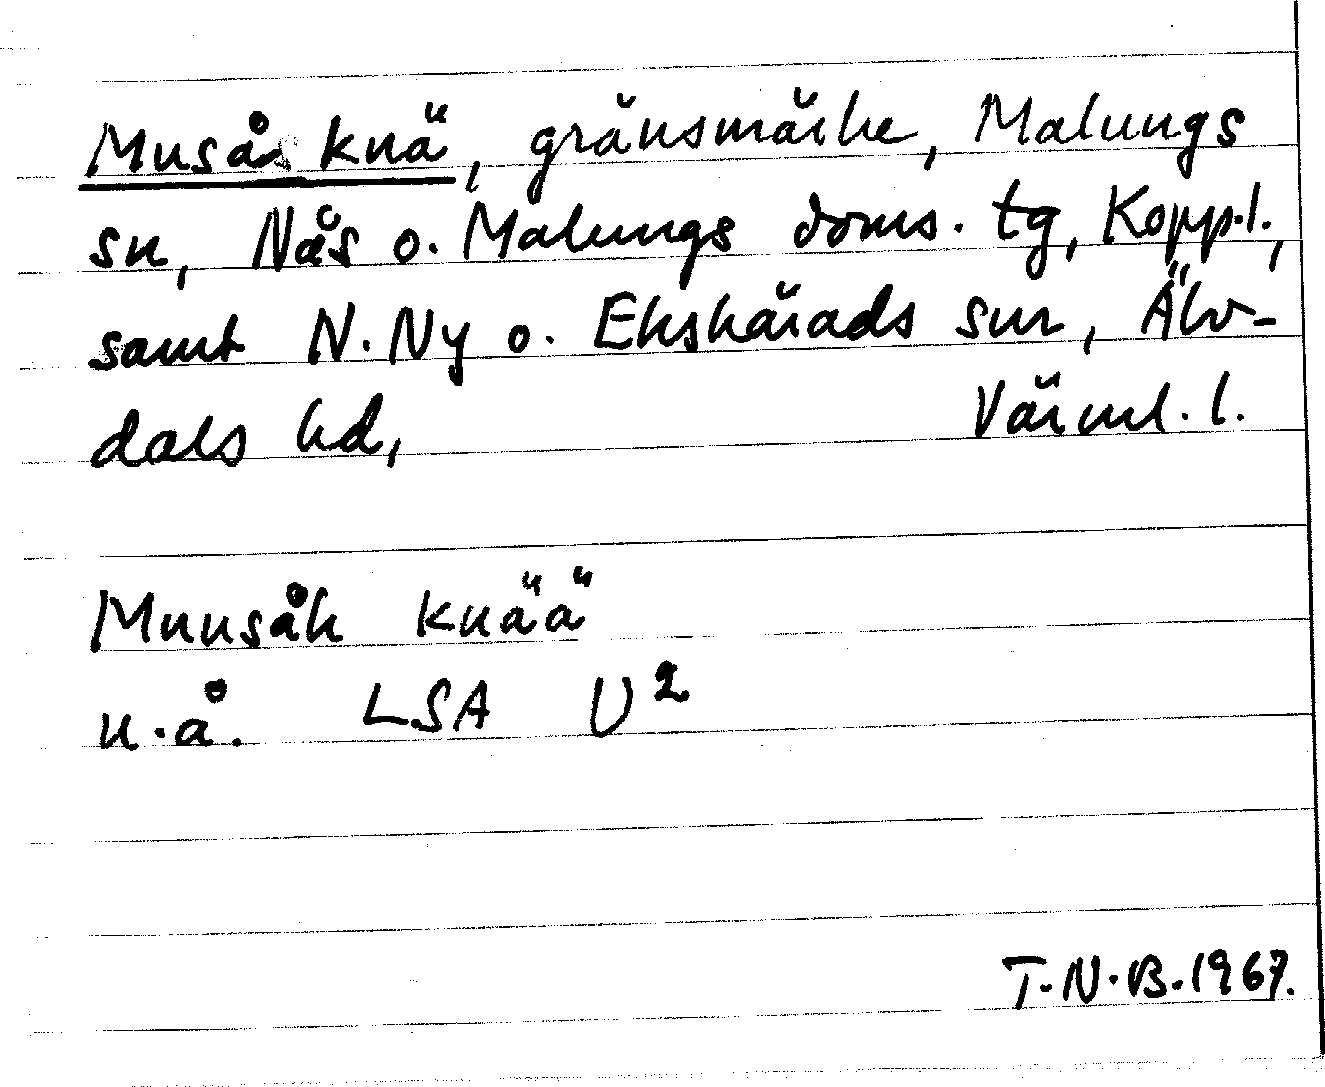 Musås knä, gränsmärke, Malungs
sn, Nås o. Malungs doms. tg, Kopp.l.,
samt N. Ny o. Ekshärads snr, Älv-
dals hd, Värml. l.
Muusåk knää
u.å. LSA U²
T.N.B. 1967.